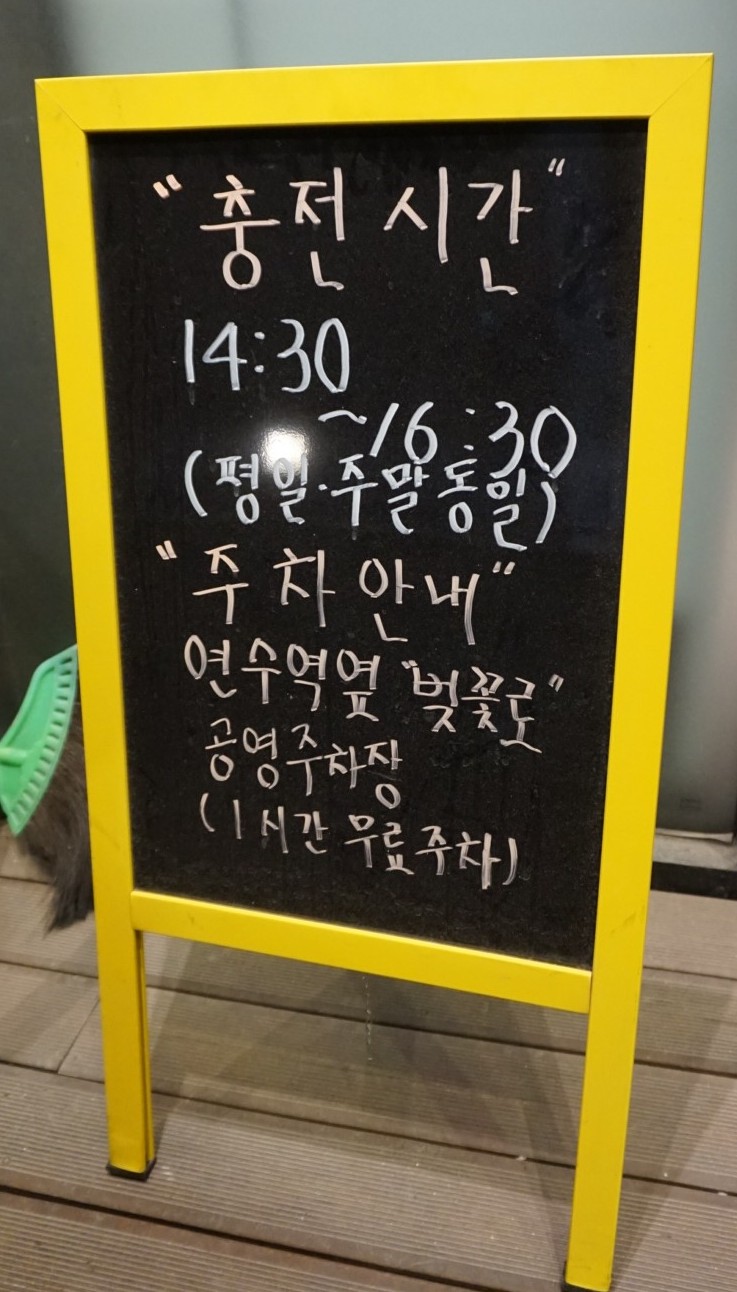 "충전 시간"
14:30
~16:30
(평일·주말 동일)
"주차 안내"
연수역옆 "벚꽃로"
공영주차장
(1시간 무료주차)